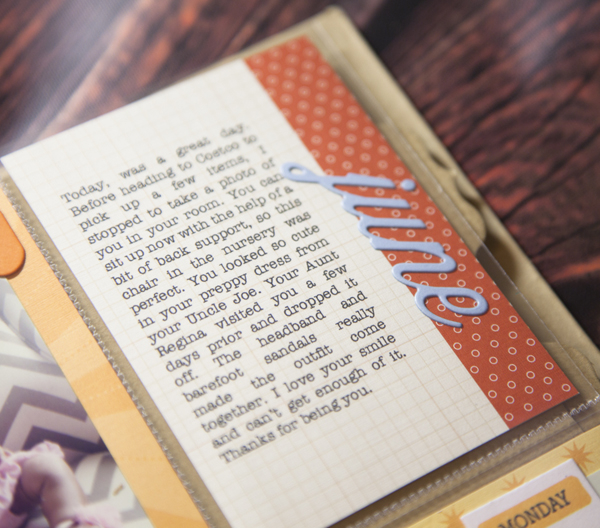 Today, was a great day.
Before heading to Costco to
pick up a few items, I
stopped to take a photo of
you in your room. You can
sit up now with the help of a
bit of back support, so this
chair in the nursery was
perfect. You looked so cute
in your preppy dress from
your Uncle Joe. Your Aunt
Regina visited you a few
days prior and dropped it
off. The headband and
barefoot sandals really
made the outfit come
together. I love your smile
and can't get enough of it.
Thanks for being you.
june
MONDAY